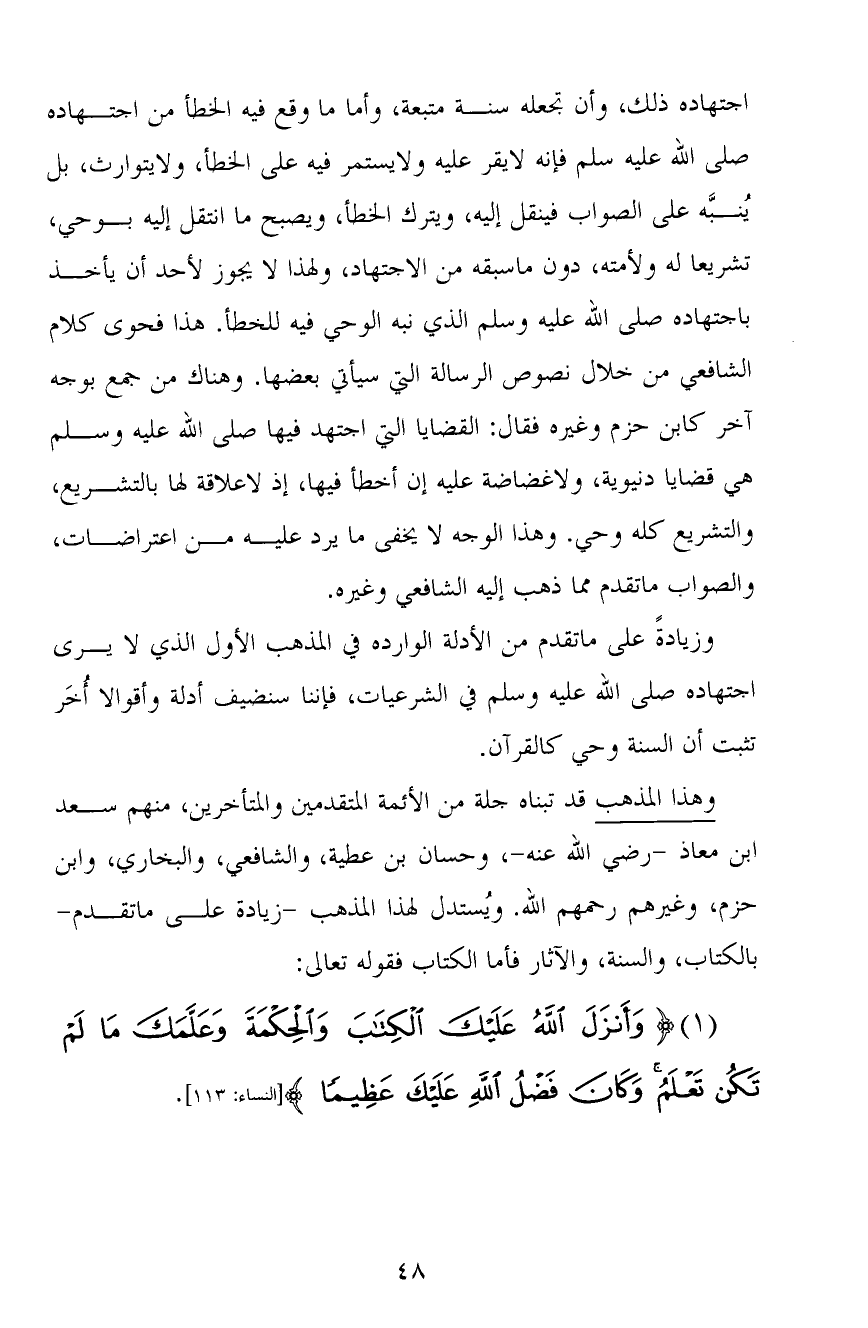 اجتهاده ذلك، وأن تجعله سنة متبعة، وأما ما وقع فيه الخطأ من اجتهاده
صلى الله عليه سلم فإنه لايقر عليه ولايستمر فيه على الخطأ، ولايتوارث، بل
يُنبَّه على الصواب فينقل إليه، ويترك الخطأ، ويصبح ما انتقل إليه بوحي،
تشريعا له ولأمته، دون ماسبقه من الاجتهاد، ولهذا لا يجوز لأحد أن يأخذ
باجتهاده صلى الله عليه وسلم الذي نبه الوحي فيه للخطأ. هذا فحوى كلام
الشافعي من خلال نصوص الرسالة التي سيأتي بعضها. وهناك من جمع بوجه
آخر كابن حزم وغيره فقال: القضايا التي اجتهد فيها صلى الله عليه وسلم
هي قضايا دنيوية، ولاغضاضة عليه إن أخطأ فيها، إذ لاعلاقة لها بالتشريع،
والتشريع كله وحي. وهذا الوجه لا يخفى ما يرد عليه من اعتراضات،
والصواب ماتقدم مما ذهب إليه الشافعي وغيره.
وزيادةً على ماتقدم من الأدلة الوارده في المذهب الأول الذي لا يرى
اجتهاده صلى الله عليه وسلم في الشرعيات، فإننا سنضيف أدلة وأقوالا أُخَر
تثبت أن السنة وحي كالقرآن.
وهذا المذهب قد تبناه جلة من الأئمة المتقدمين والمتأخرين، منهم سعد
ابن معاذ -رضي الله عنه-، وحسان بن عطية، والشافعي، والبخاري، وابن
حزم، وغيرهم رحمهم الله. ويُستدل لهذا المذهب -زيادة على ماتقدم-
بالكتاب، والسنة، والآثار فأما الكتاب فقوله تعالى:
(١) ﴿ وَأَنزَلَ ٱللَّهُ عَلَيْكَ ٱلْكِتَٰبَ وَٱلْحِكْمَةَ وَعَلَّمَكَ مَا لَمْ
تَكُن تَعْلَمُ ۚ وَكَانَ فَضْلُ ٱللَّهِ عَلَيْكَ عَظِيمًا ﴾ [النساء: ١١٣].
٤٨